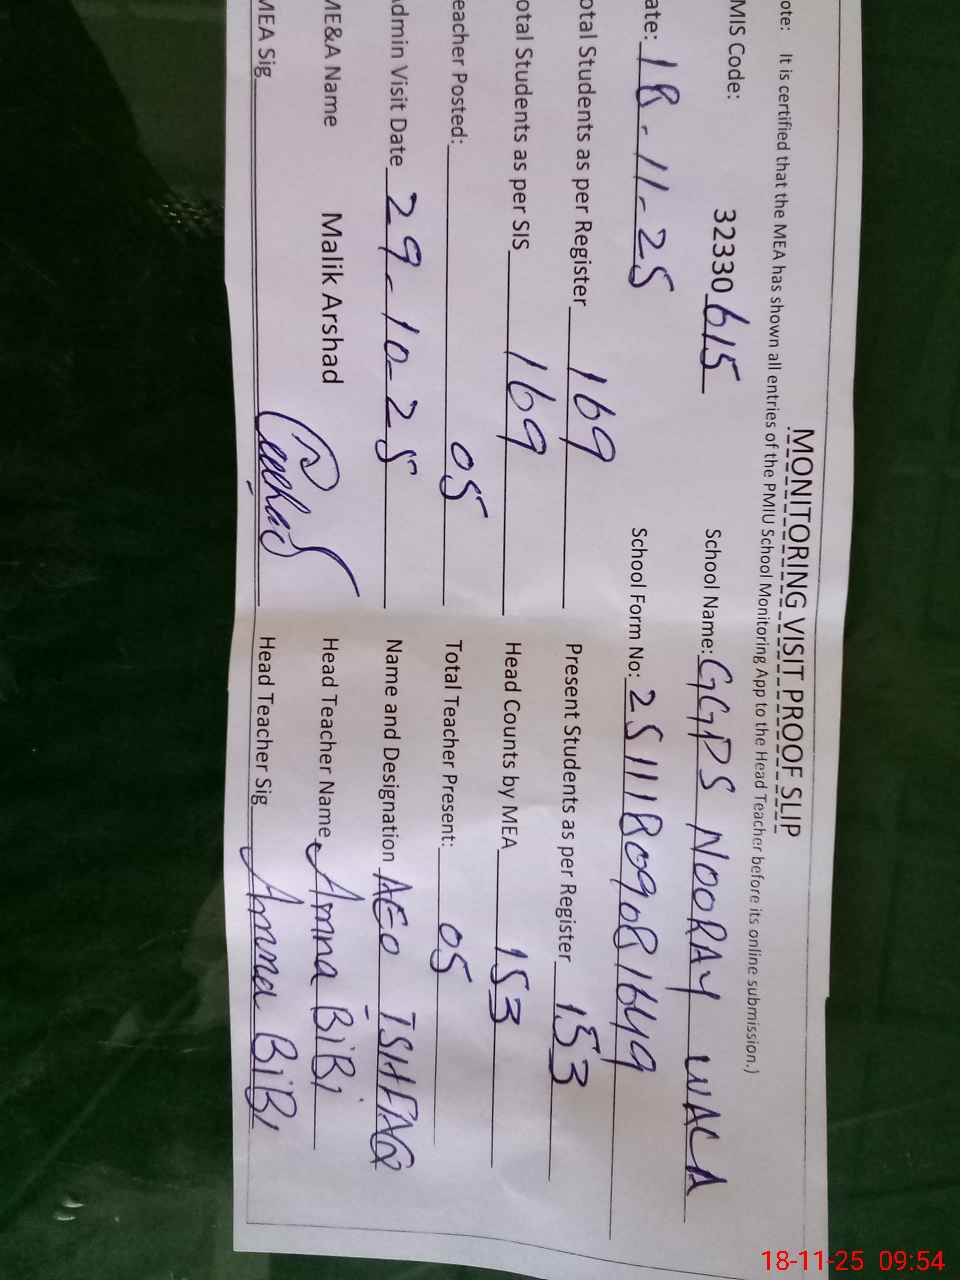 MONITORING VISIT PROOF SLIP
ote: It is certified that the MEA has shown all entries of the PMIU School Monitoring App to the Head Teacher before its online submission.)
MIS Code: 32330615 School Name: GGPS NOORAY WALA
ate: 18-11-25 School Form No: 25111809081649
otal Students as per Register 169 Present Students as per Register 153
otal Students as per SIS 169 Head Counts by MEA 153
eacher Posted: 05 Total Teacher Present: 05
dmin Visit Date 29-10-25 Name and Designation AEO ISHFAQ
ME&A Name Malik Arshad Head Teacher Name Amna BiBi
MEA Sig Head Teacher Sig Amna BiBi
18-11-25 09:54